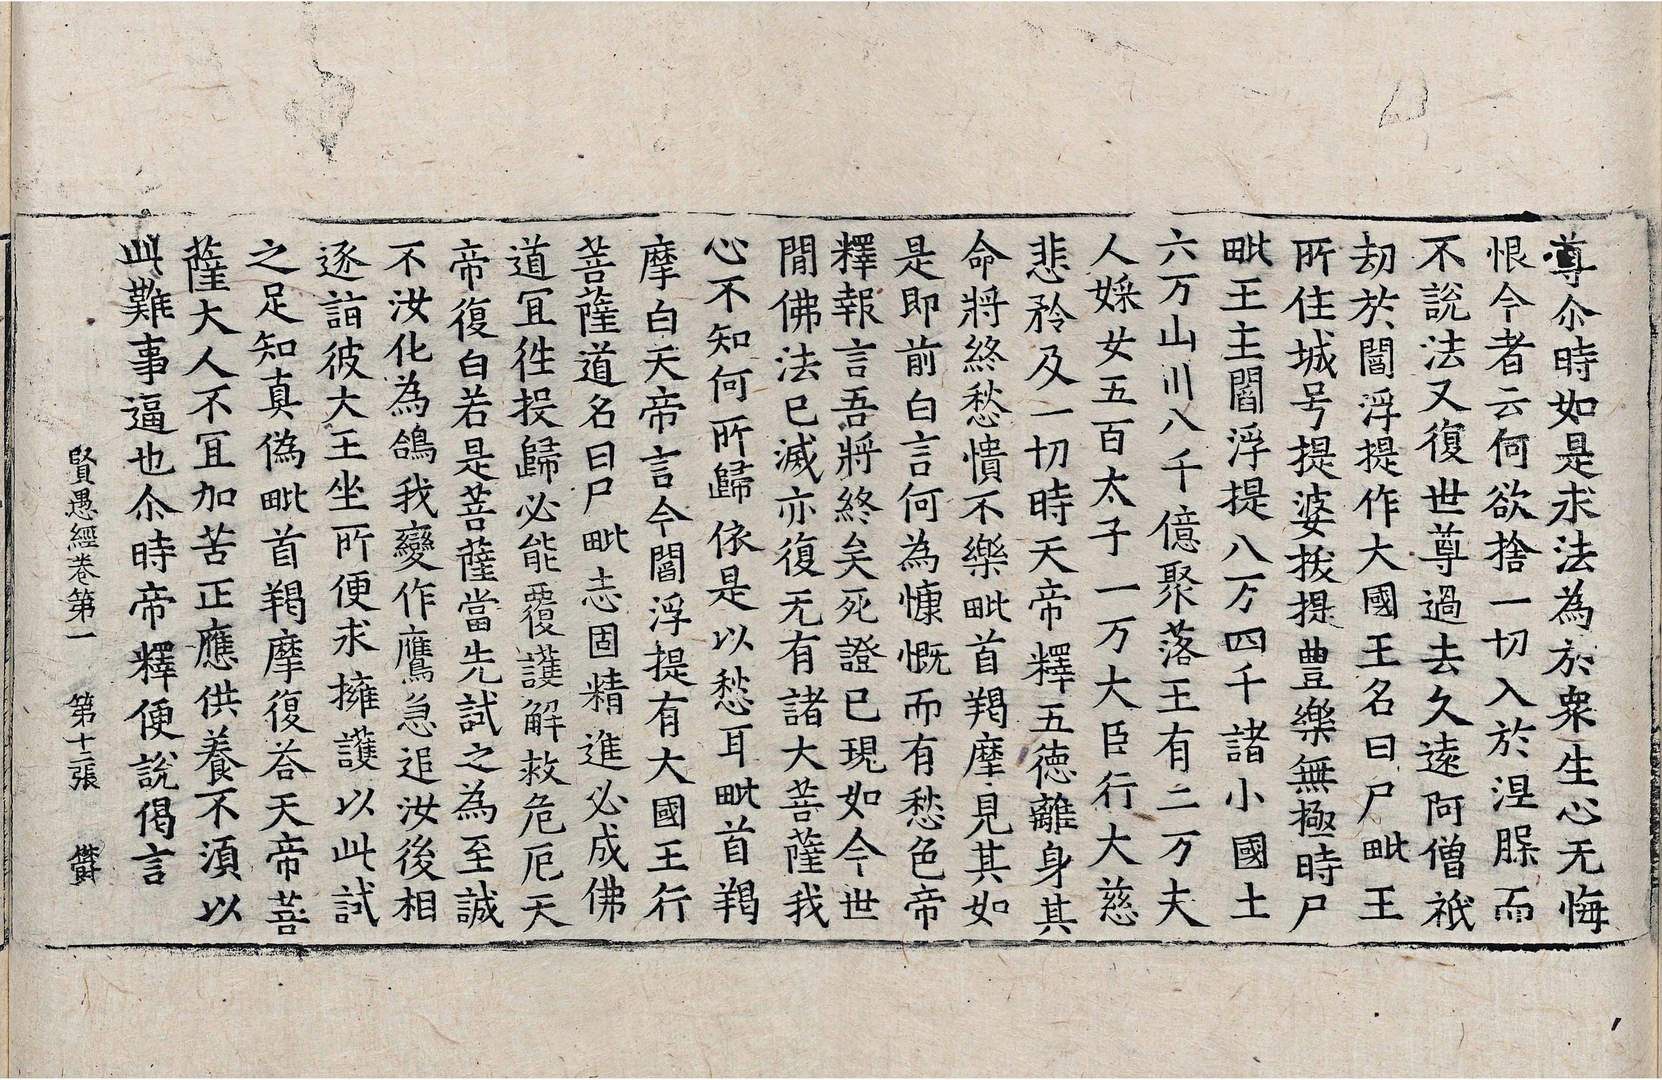 尊尒時如是求法為於衆生心无悔
恨今者云何欲捨一切入於涅槃而
不說法又復世尊過去久遠阿僧祇
劫於閻浮提作大國王名曰尸毗王
所住城号提婆拔提豊樂無極時尸
毗王主閻浮提八万四千諸小國土
六万山川八千億聚落王有二万夫
人婇女五百太子一万大臣行大慈
悲矜及一切時天帝釋五德離身其
命將終愁憒不樂毗首羯摩見其如
是即前白言何為慷慨而有愁色帝
釋報言吾將終矣死證已現如今世
閒佛法已滅亦復无有諸大菩薩我
心不知何所歸依是以愁耳毗首羯
摩白天帝言今閻浮提有大國王行
菩薩道名曰尸毗志固精進必成佛
道冝徃投歸必能覆護解救危厄天
帝復白若是菩薩當先試之為至誠
不汝化為鴿我變作鷹急追汝後相
逐詣彼大王坐所便求擁護以此試
之足知真偽毗首羯摩復荅天帝菩
薩大人不冝加苦正應供養不須以
此難事逼也尒時帝釋便說偈言
賢愚經卷第一 第十二張